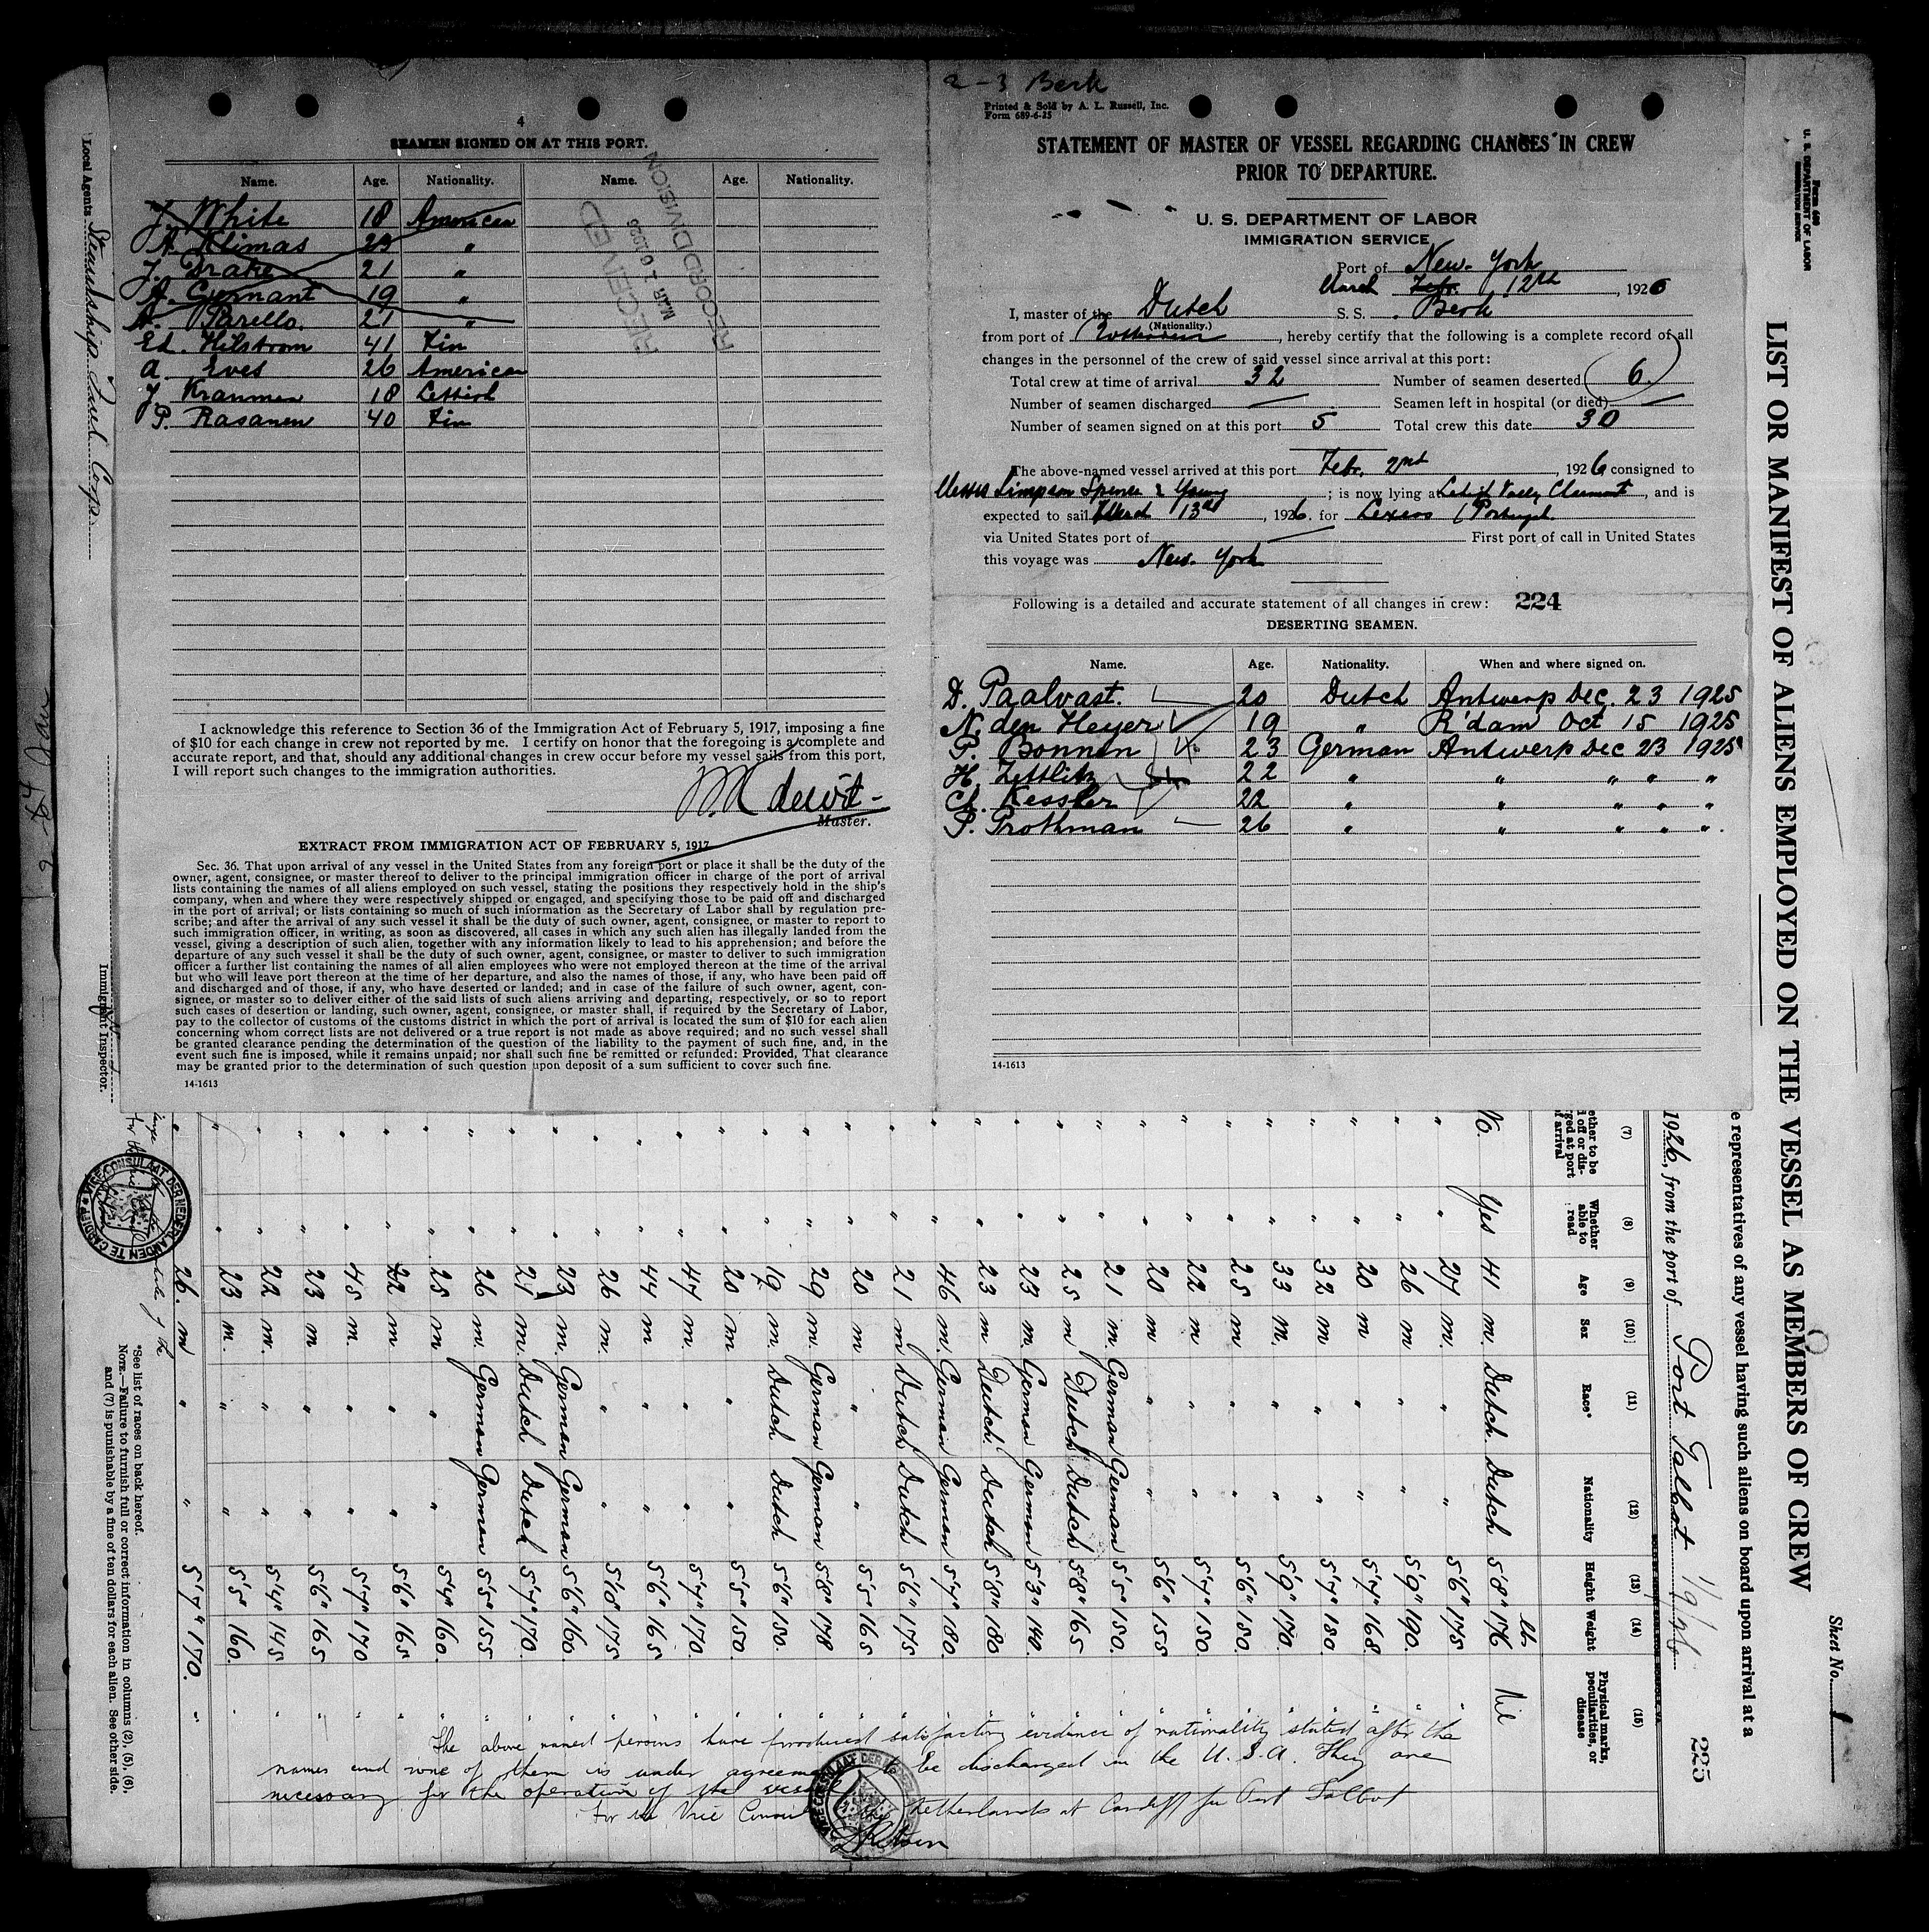 4
SEAMEN SIGNED ON AT THIS PORT.
Name. Age. Nationality. Name. Age. Nationality.
J. White 18 American
A. Klimas 23 "
J. Drake 21 "
A. Gernant 19 "
Parello. 21 "
Ed. Hilstrom 41 Fin
A. Eves 26 American
J. Kranmen 18 Lettish
P. Rasanen 40 Fin
RECEIVED
MAR 1926
RECORD DIVISION
I acknowledge this reference to Section 36 of the Immigration Act of February 5, 1917, imposing a fine
of $10 for each change in crew not reported by me. I certify on honor that the foregoing is a complete and
accurate report, and that, should any additional changes in crew occur before my vessel sails from this port,
I will report such changes to the immigration authorities.
Master.
EXTRACT FROM IMMIGRATION ACT OF FEBRUARY 5, 1917.
Sec. 36. That upon arrival of any vessel in the United States from any foreign port or place it shall be the duty of the
owner, agent, consignee, or master thereof to deliver to the principal immigration officer in charge of the port of arrival
lists containing the names of all aliens employed on such vessel, stating the positions they respectively hold in the ship's
company, when and where they were respectively shipped or engaged, and specifying those to be paid off and discharged
in the port of arrival; or lists containing so much of such information as the Secretary of Labor shall by regulation pre-
scribe; and after the arrival of any such vessel it shall be the duty of such owner, agent, consignee, or master to report to
such immigration officer, in writing, as soon as discovered, all cases in which any such alien has illegally landed from the
vessel, giving a description of such alien, together with any information likely to lead to his apprehension; and before the
departure of any such vessel it shall be the duty of such owner, agent, consignee, or master to deliver to such immigration
officer a further list containing the names of all alien employees who were not employed thereon at the time of the arrival
but who will leave port thereon at the time of her departure, and also the names of those, if any, who have been paid off
and discharged and of those, if any, who have deserted or landed; and in case of the failure of such owner, agent, con-
signee, or master so to deliver either of the said lists of such aliens arriving and departing, respectively, or so to report
such cases of desertion or landing, such owner, agent, consignee, or master shall, if required by the Secretary of Labor,
pay to the collector of customs of the customs district in which the port of arrival is located the sum of $10 for each alien
concerning whom correct lists are not delivered or a true report is not made as above required; and no such vessel shall
be granted clearance pending the determination of the question of the liability to the payment of such fine, and, in the
event such fine is imposed, while it remains unpaid; nor shall such fine be remitted or refunded: Provided, That clearance
may be granted prior to the determination of such question upon deposit of a sum sufficient to cover such fine.
14-1613
2-3 Berk
Printed & Sold by A. L. Russell, Inc.
Form 689-6-25
STATEMENT OF MASTER OF VESSEL REGARDING CHANGES IN CREW
PRIOR TO DEPARTURE.
U. S. DEPARTMENT OF LABOR
IMMIGRATION SERVICE
Port of New-York
March Febr. 12th, 1926
I, master of the Dutch S. S. Berk
(Nationality.)
from port of Rotterdam, hereby certify that the following is a complete record of all
changes in the personnel of the crew of said vessel since arrival at this port:
Total crew at time of arrival 32 Number of seamen deserted 6
Number of seamen discharged — Seamen left in hospital (or died) —
Number of seamen signed on at this port 5 Total crew this date 30
The above-named vessel arrived at this port Febr. 2nd, 1926 consigned to
Messrs Simpson Spence & Young; is now lying at, and is
expected to sail March 13, 1926. for Leixoes (Portugal.
via United States port of — First port of call in United States
this voyage was New-York
Following is a detailed and accurate statement of all changes in crew: 224
DESERTING SEAMEN.
Name. Age. Nationality. When and where signed on.
D. Paalvast. 20 Dutch Antwerp Dec. 23 1925
N. den Heyer 19 " R'dam Oct 15 1925
P. Bonnen 23 German Antwerp Dec 23 1925
H. Zettlitz 22 " " " " "
Ch. Kessler 22 " " " " "
P. Prothman 26 " " " " "
14-1613
Form 689
U. S. DEPARTMENT OF LABOR
IMMIGRATION SERVICE
Sheet No. 1
LIST OR MANIFEST OF ALIENS EMPLOYED ON THE VESSEL AS MEMBERS OF CREW
e representatives of any vessel having such aliens on board upon arrival at a
1926, from the port of Port Talbot 1/9/26
225
(7) (8) (9) (10) (11) (12) (13) (14) (15)
ether to be
off or dis-
ged at port
f arrival
Whether able to read Age Sex Race* Nationality Height Weight Physical marks, peculiarities, or disease
lbs
No. Yes 41 m. Dutch Dutch 5'8" 176 Nil
" " 27 m. " " 5'6" 175 "
" " 26 m " " 5'9" 190. "
" " 20 m " " 5'7" 168 "
" " 32 m " " 5'7" 180 "
" " 33 m. " " 5'9" 170. "
" " 25 m " " 5'6" 150. "
" " 22 m " " 5'7" 150. "
" " 20 m " " 5'6" 155 "
" " 21 m German German 5'5" 150. "
" " 25 m Dutch Dutch 5'8" 165 "
" " 23 m. German German 5'3" 140. "
" " 23 m Dutch Dutch 5'8" 180 "
" " 46 m. German German 5'7" 180. "
" " 21 m Dutch Dutch 5'6" 175 "
" " 20 m " " 5'5" 165 "
" " 29 m. German German 5'8" 178 "
" " 19 m. Dutch Dutch 5'6" 150. "
" " 20 m " " 5'5" 150 "
" " 47 m. " " 5'7" 170. "
" " 44 m " " 5'6" 165 "
" " 26 m. " " 5'8" 175 "
" " 23 m. German German 5'6" 160. "
" " 21 m Dutch Dutch 5'7" 170. "
" " 26 m. German German 5'5" 155 "
" " 25 m " " 5'4" 160. "
" " 22 m " " 5'6" 165 "
" " 45 m. " " 5'7" 170 "
" " 23 m " " 5'6" 165 "
" " 22 m. " " 5'4" 145 "
" " 23 m. " " 5'5" 160. "
" " 26. m " " 5'7" 170. "
The above named persons have produced satisfactory evidence of nationality stated after the
names and none of them is under agreement to be discharged in the U.S.A. They are
necessary for the operation of the vessel
For the Vice Consul Netherlands at Cardiff for Port Talbot
VICE CONSULAAT DER NEDERLANDEN TE CARDIFF
*See list of races on back hereof.
NOTE.—Failure to furnish full or correct information in columns (2), (5), (6),
and (7) is punishable by a fine of ten dollars for each alien. See other side.
Local Agents Steamship Fuel Corp.
Immigrant Inspector.